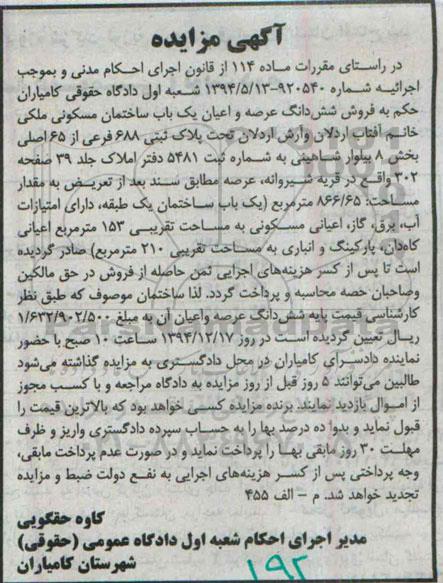 آگهی مزایده
در راستای مقررات ماده ۱۱۴ از قانون اجرای احکام مدنی و بموجب
اجرائیه شماره ۹۲۰۵۴۰-۱۳۹۴/۵/۱۳ شعبه اول دادگاه حقوقی کامیاران
حکم به فروش شش‌دانگ عرصه و اعیان یک باب ساختمان مسکونی ملکی
خانم آفتاب اردلان وارش اردلان تحت پلاک ثبتی ۶۸۸ فرعی از ۶۵ اصلی
بخش ۸ بیلوار شاهینی به شماره ثبت ۵۴۸۱ دفتر املاک جلد ۳۹ صفحه
۳۰۲ واقع در قریه شیروانه، عرصه مطابق سند بعد از تعریض به مقدار
مساحت: ۸۶۶/۶۵ مترمربع (یک باب ساختمان یک طبقه، دارای امتیازات
آب، برق، گاز، اعیانی مسکونی به مساحت تقریبی ۱۵۳ مترمربع اعیانی
کاه‌دان، پارکینگ و انباری به مساحت تقریبی ۲۱۰ مترمربع) صادر گردیده
است تا پس از کسر هزینه‌های اجرایی ثمن حاصله از فروش در حق مالکین
وصاحبان حصه محاسبه و پرداخت گردد. لذا ساختمان موصوف که طبق نظر
کارشناسی قیمت پایه شش‌دانگ عرصه واعیان آن به مبلغ ۱/۶۳۲/۹۰۲/۵۰۰
ریال تعیین گردیده است در روز ۱۳۹۴/۱۲/۱۷ ساعت ۱۰ صبح با حضور
نماینده دادسرای کامیاران در محل دادگستری به مزایده گذاشته می‌شود
طالبین می‌توانند ۵ روز قبل از روز مزایده به دادگاه مراجعه و با کسب مجوز
از اموال بازدید نمایند. برنده مزایده کسی خواهد بود که بالاترین قیمت را
قبول نماید و بدوا ده درصد بها را به حساب سپرده دادگستری واریز و ظرف
مهلت ۳۰ روز مابقی بها را پرداخت نماید و در صورت عدم پرداخت مابقی،
وجه پرداختی پس از کسر هزینه‌های اجرایی به نفع دولت ضبط و مزایده
تجدید خواهد شد. م – الف ۴۵۵
کاوه حقگویی
مدیر اجرای احکام شعبه اول دادگاه عمومی (حقوقی)
شهرستان کامیاران
۱۹۲